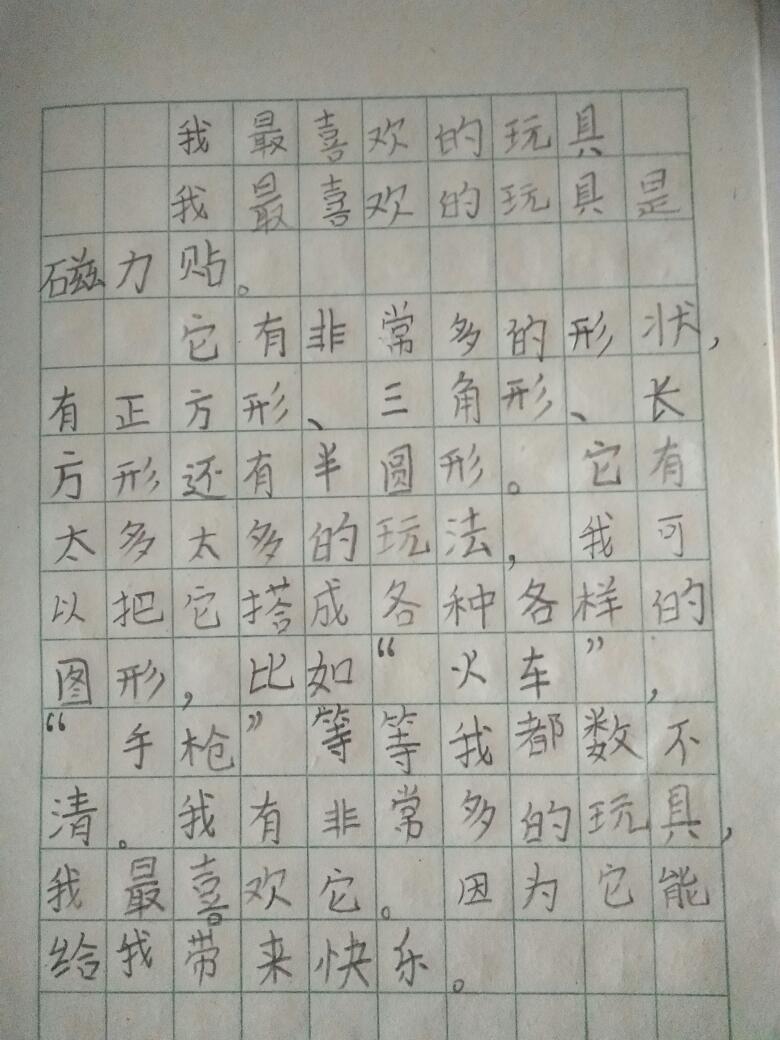 我最喜欢的玩具
我最喜欢的玩具是
磁力贴。
它有非常多的形状,
有正方形、三角形、长
方形还有半圆形。它有
太多太多的玩法,我可
以把它搭成各种各样的
图形,比如“火车”,
“手枪”等等我都数不
清。我有非常多的玩具,
我最喜欢它。因为它能
给我带来快乐。